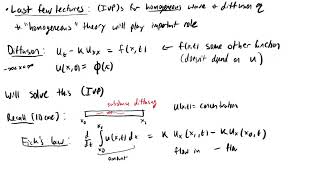 • Last few lectures: (IVP)s for homogeneous wave & diffusion eq
* "homogeneous" theory will play important role
Diffusion: u_t - k u_xx = f(x,t) ← f(x,t) some other function
-∞<x<∞ u(x,0) = ϕ(x) (doesn't depend on u)
Will solve this (IVP)
substance diffusing
Recall (10 case) u(x,t) = concentration
x_0 x_1
Fick's law: d/dt ∫_{x_0}^{x_1} u(x,t) dx = k u_x(x_1,t) - k u_x(x_0,t)
amount flow in - flo